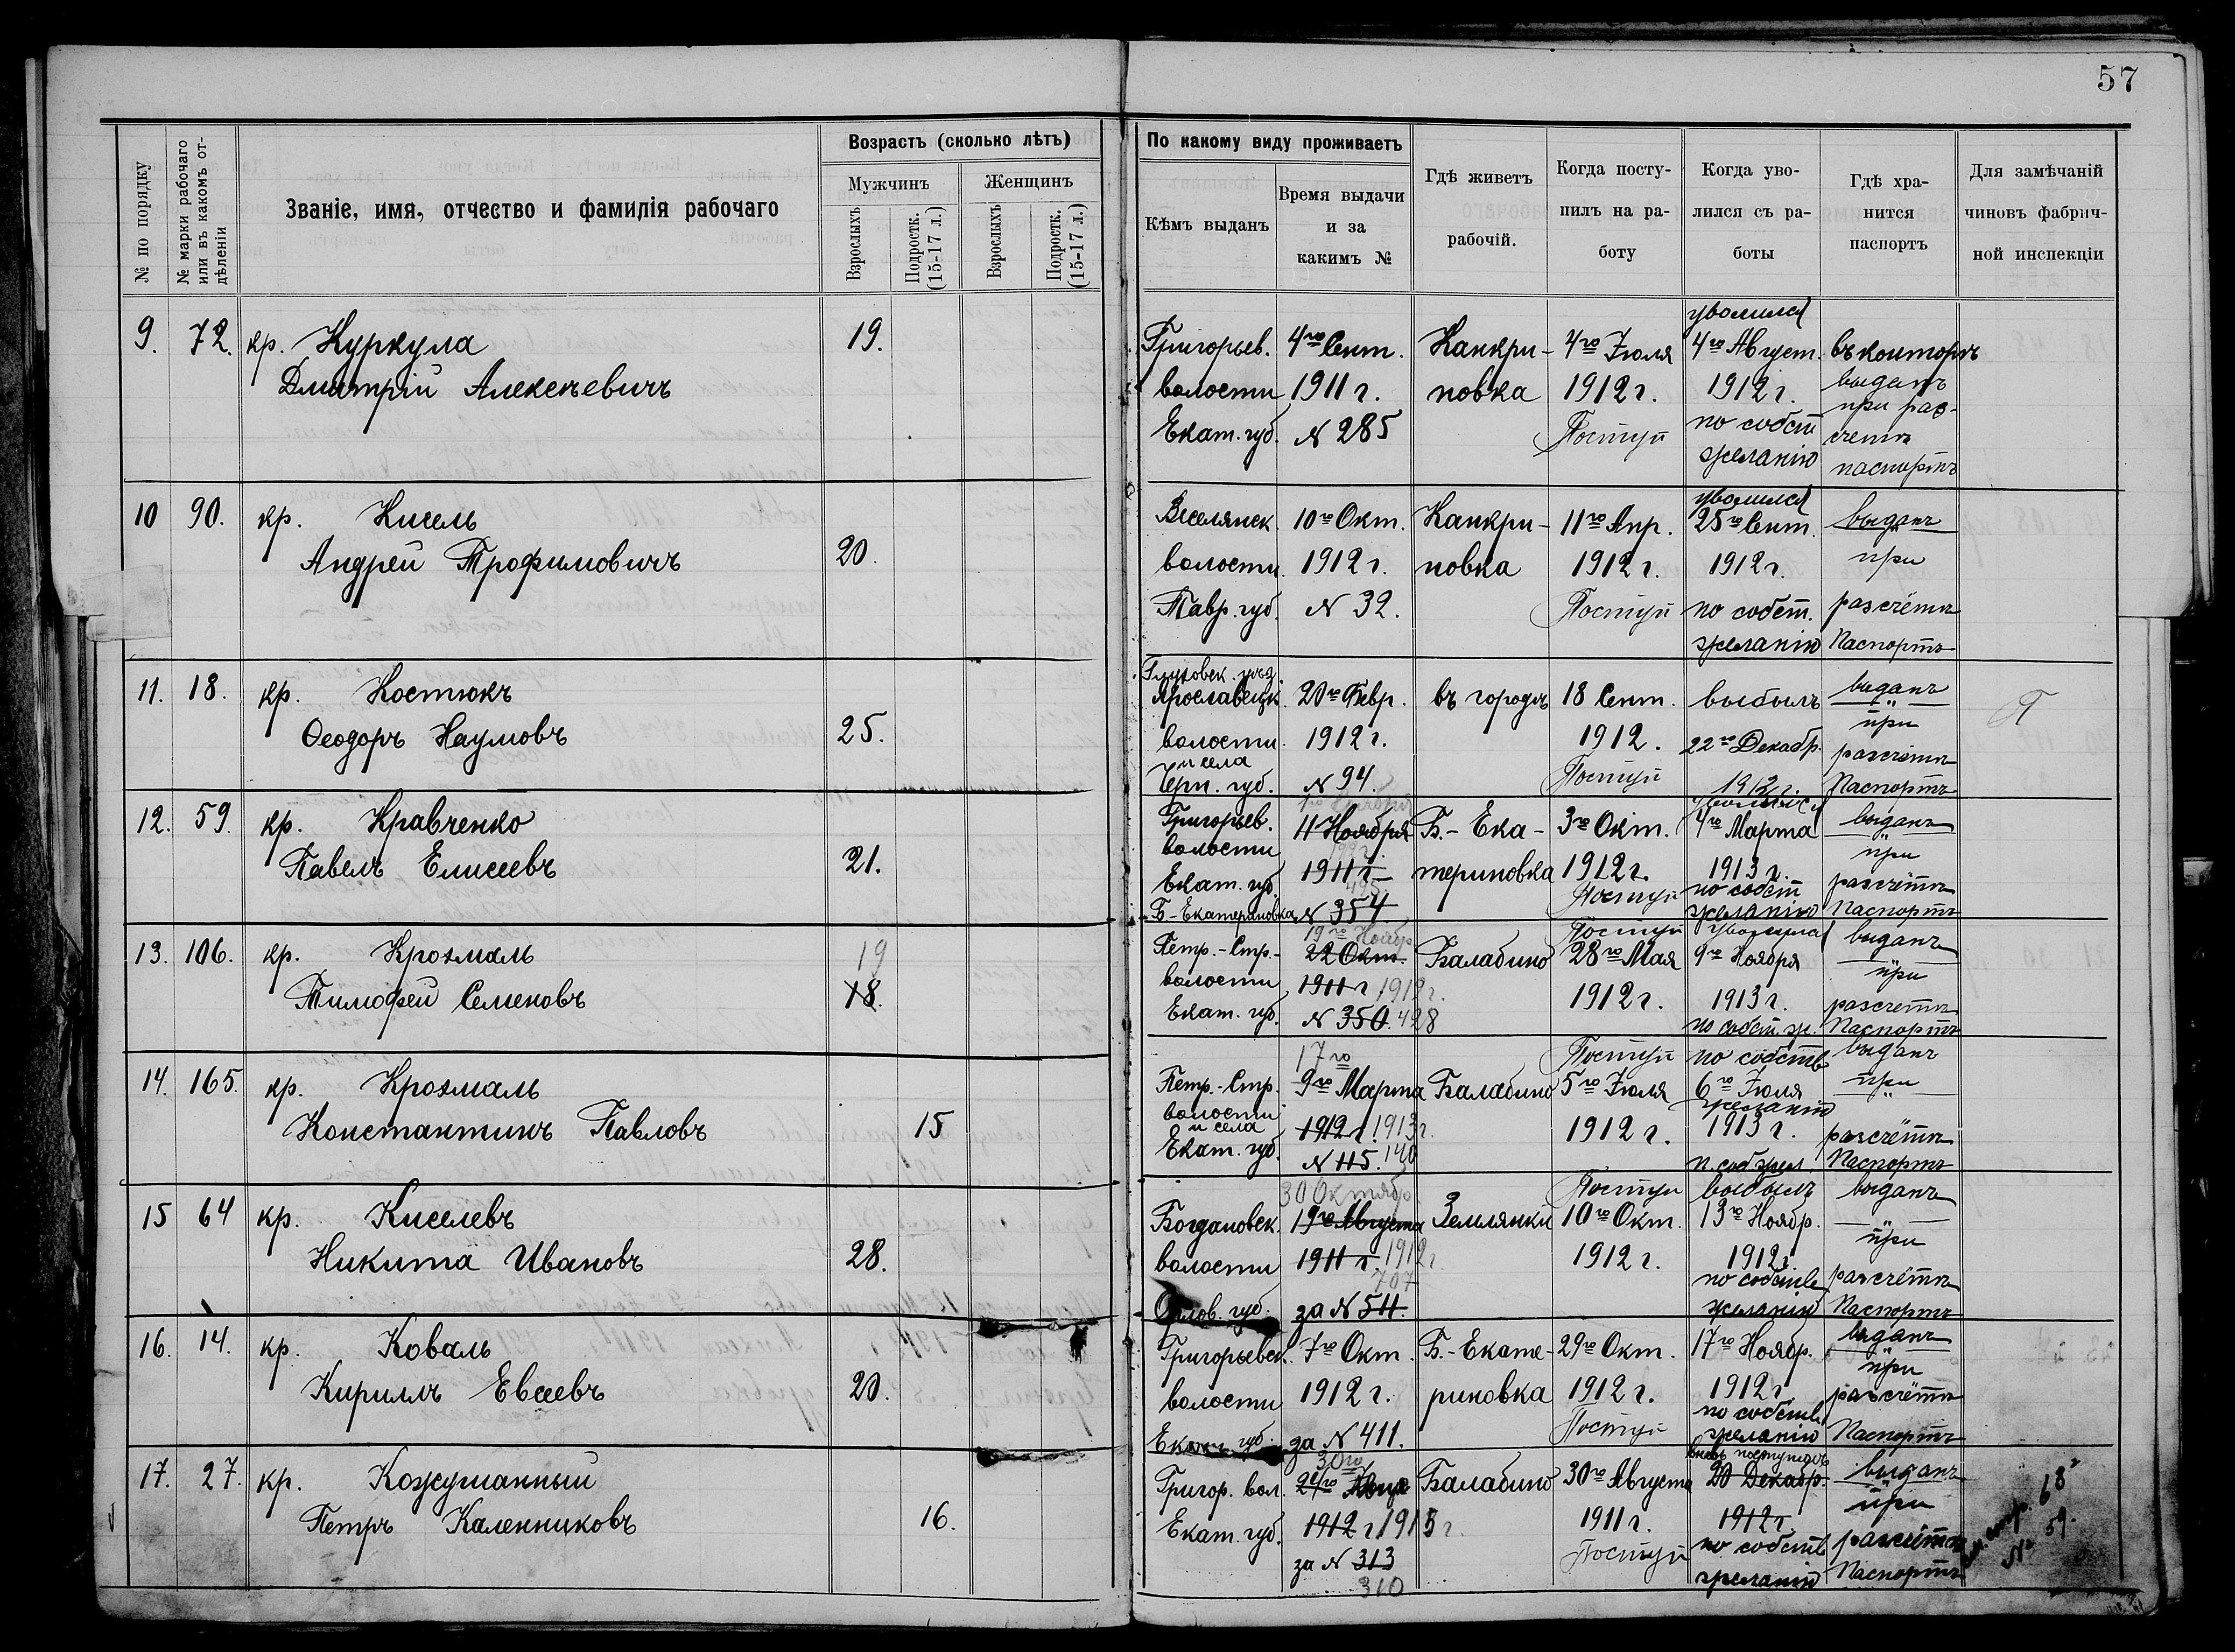 57
№ по порядку
№ марки рабочаго или въ какомъ отдѣленіи
Званіе, имя, отчество и фамилія рабочаго
Возрастъ (сколько лѣтъ)
Мужчинъ
Женщинъ
Взрослыхъ
Подростк. (15-17 л.)
Взрослыхъ
Подростк. (15-17 л.)
По какому виду проживаетъ
Кѣмъ выданъ
Время выдачи
и за
какимъ №
Гдѣ живетъ
рабочій.
Когда посту-
пилъ на ра-
боту
Когда уво-
лился съ ра-
боты
Гдѣ хра-
нится
паспортъ
Для замѣчаній
чиновъ фабрич-
ной инспекціи
9. 72. кр. Куркула
Дмитрій Алексѣевичъ
19.
Григорьев.
волости
Екат. губ.
4го Сент.
1911 г.
№ 285
Канкри-
новка
4го Іюля
1912 г.
Поступ
уволился
4го Август.
1912 г.
по собст
желанію
въ конторѣ
выданъ
при раз-
счетѣ
паспортъ
10 90. кр. Кисель
Андрей Трофимовичъ
20.
Веселянск.
волости.
Тавр. губ.
10го Окт.
1912 г.
№ 32.
Канкри-
новка
11го Апр.
1912 г.
Поступ
уволился
25го Сент.
1912 г.
по собст.
желанію
выданъ
при
разсчётѣ
Паспортъ
11. 18. кр. Костюкъ
Ѳеодоръ Наумовъ
25.
Глуховск. уѣд.
Ярославецк.
волости.
и села
Черн. губ.
20го Февр.
1912 г.
№ 94.
въ городѣ
18 Сент.
1912.
Поступ
выбылъ
22го Декабр.
1912 г.
выданъ
при
разсчётѣ
Паспортъ
12. 59. кр. Кравченко
Павелъ Елисеевъ
21.
Григорьев.
волости
Екат. губ.
Б.-Екатериновка
11 Ноября
1911 г.
495
№ 354.
Б.-Ека-
териновка
3го Окт.
1912 г.
Поступ
уволился
4го Марта
1913 г.
по собст
желанію
выданъ
при
разсчётѣ
Паспортъ
13. 106. кр. Крохмаль
Тимофей Семеновъ
19
18.
Петр.-Стр.-
волости
Екат. губ.
19го Ноябр
22 Окт.
1911 г. 1912 г.
№ 350. 428
Балабино
Поступ
28го Мая
1912 г.
уволился
9го Ноября
1913 г.
по собст. ж.
выданъ
при
разсчетѣ
Паспортъ
14. 165. кр. Крохмаль
Константинъ Павловъ
15
Петр.-Стр.
волости
и села
Екат. губ.
17го
9го Марта
1912 г. 1913 г.
№ 115. 140
Балабино
Поступ
5го Іюля
1912 г.
по собств
6го Іюля
желанію
1913 г.
п. соб жел.
выданъ
при
разсчётѣ
Паспортъ
15 64 кр. Киселевъ
Никита Ивановъ
28.
Богдановск.
волости
Орлов. губ.
30 Октябр
19го Августа
1911 г. 1912 г.
707
за № 511.
Землянки
Поступ
10го Окт.
1912 г.
выбылъ
13го Ноябр.
1912 г.
по собств
желанію
выданъ
при
разсчётѣ
Паспортъ
16. 14. кр. Коваль
Кириллъ Евсеевъ
20.
Григорьевск.
волости
Екат. губ.
7го Окт.
1912 г.
за № 411.
Б.-Екате-
риновка
29го Окт.
1912 г.
Поступ
17го Ноябр.
1912 г.
по собств
желанію
выданъ
при
разсчётѣ
Паспортъ
17. 27. кр. Кожушанный
Петръ Каленниковъ
16.
Григор. вол.
Екат. губ.
30го
1912 г. 1913 г.
за № 313
310
Балабино
30го Августа
1911 г.
Поступ
вновь поступилъ
20 Декабр.
1912 г.
по собств
желанію
выданъ
при
разсчётѣ
Паспортъ
см. стр. 68
№ 59.